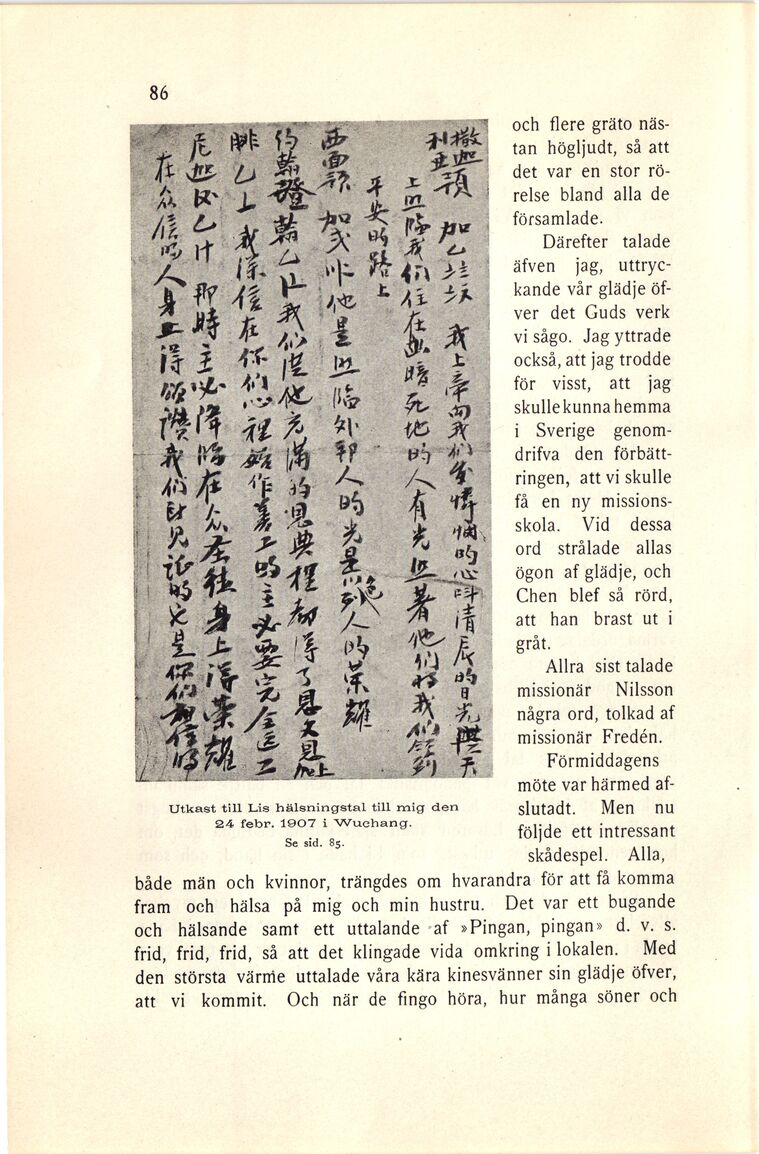 86
撒迦利亞頌 我上帝向我们發憐憫的心叫清辰的日光從天
上照臨我们住在幽暗死地的人有光照著他们將我们領到
平安的路上
西面頌 他是照臨外邦人的光是以色列人的荣耀
約翰證 我们從他充滿的恩典裡都得了恩又恩加上
腓乙上 我深信在你们心裡始作善工的主必要完全這工
即時主必降临在众圣徒身上得荣耀
在众信的人身上得頌讚我们 見証的也是你们相信的
Utkast till Lis hälsningstal till mig den
24 febr. 1907 i Wuchang.
Se sid. 85.
och flere gråto näs-
tan högljudt, så att
det var en stor rö-
relse bland alla de
församlade.
Därefter talade
äfven jag, uttryc-
kande vår glädje öf-
ver det Guds verk
vi sågo. Jag yttrade
också, att jag trodde
för visst, att jag
skulle kunna hemma
i Sverige genom-
drifva den förbätt-
ringen, att vi skulle
få en ny missions-
skola. Vid dessa
ord strålade allas
ögon af glädje, och
Chen blef så rörd,
att han brast ut i
gråt.
Allra sist talade
missionär Nilsson
några ord, tolkad af
missionär Fredén.
Förmiddagens
möte var härmed af-
slutadt. Men nu
följde ett intressant
skådespel. Alla,
både män och kvinnor, trängdes om hvarandra för att få komma
fram och hälsa på mig och min hustru. Det var ett bugande
och hälsande samt ett uttalande af »Pingan, pingan» d. v. s.
frid, frid, frid, så att det klingade vida omkring i lokalen. Med
den största värme uttalade våra kära kinesvänner sin glädje öfver,
att vi kommit. Och när de fingo höra, hur många söner och